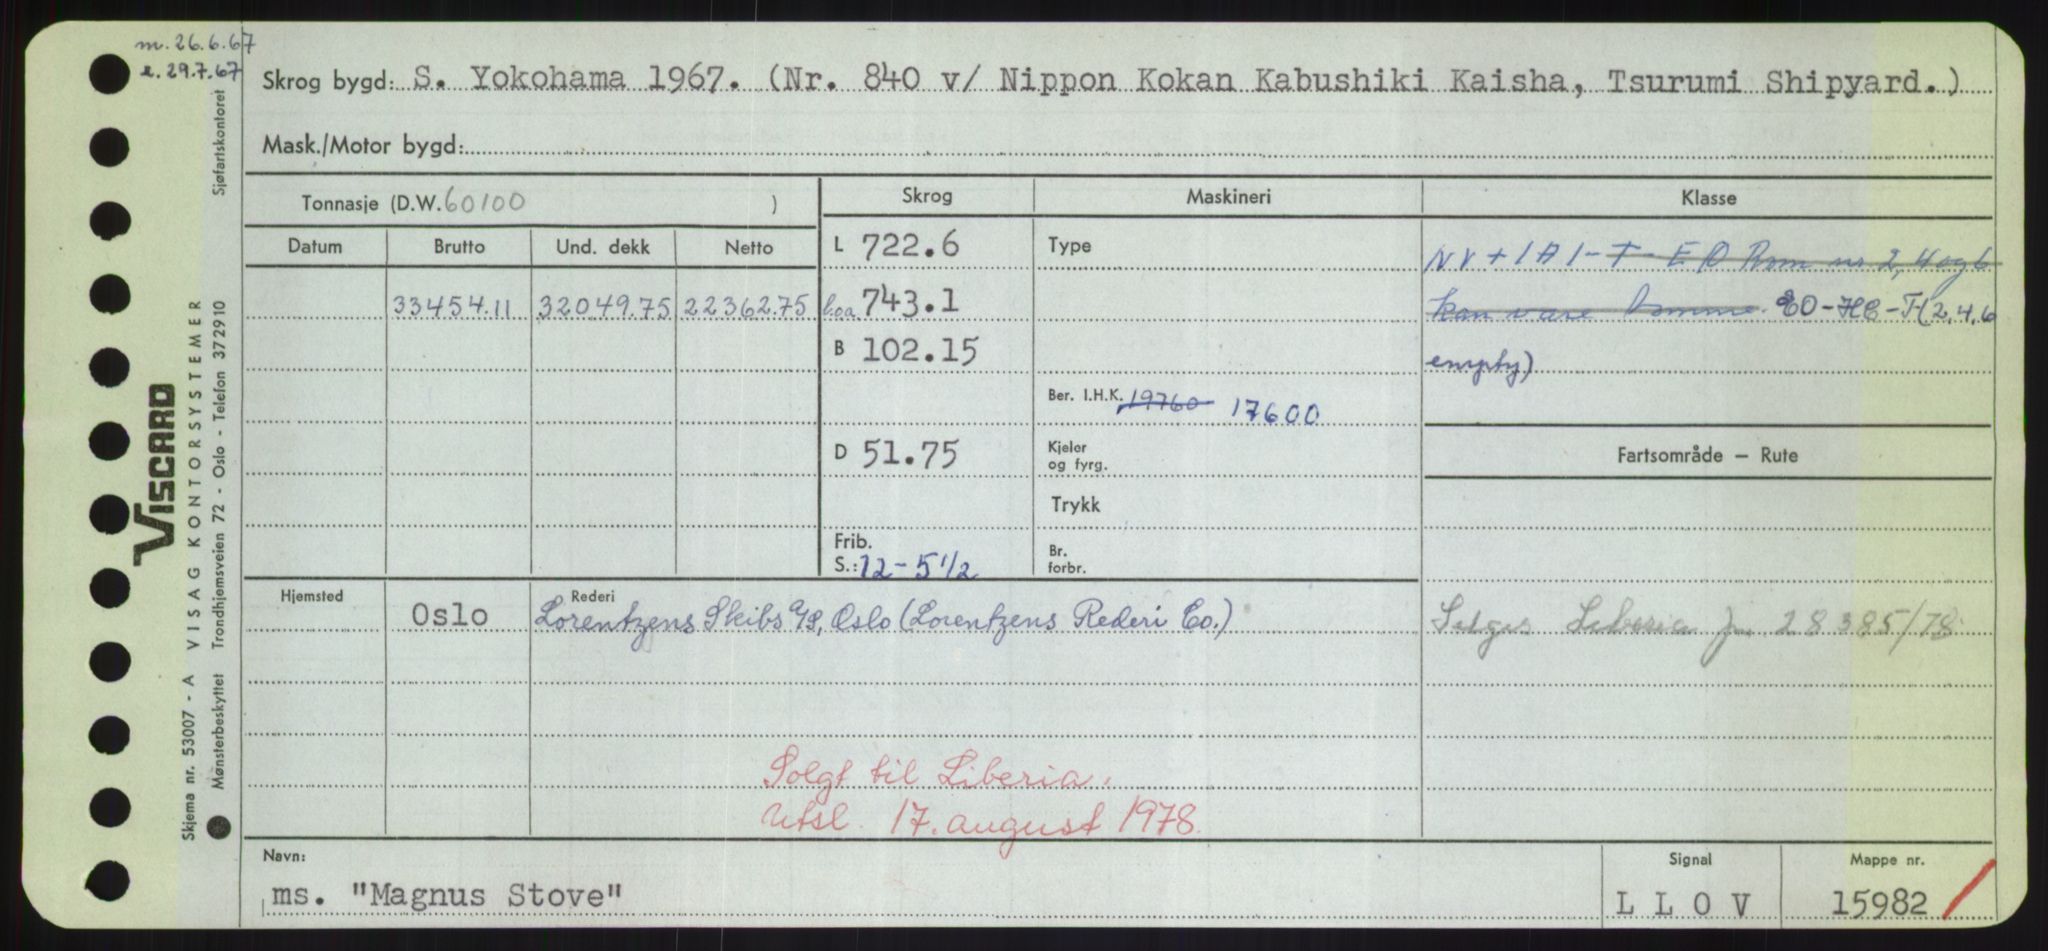 m. 26.6.67
e. 29.7.67
Skrog bygd: S. Yokohama 1967. (Nr. 840 v/ Nippon Kokan Kabushiki Kaisha, Tsurumi Shipyard.)
Mask./Motor bygd:
Tonnasje (D.W. 60100 )
Skrog
Maskineri
Klasse
Datum
Brutto
Und. dekk
Netto
33454.11
32049.75
22362.75
L 722.6
l.o.a 743.1
B 102.15
D 51.75
Frib.
S.: 12-5 1/2
Type
Ber. I.H.K. 19760 17600
Kjeler
og fyrg.
Trykk
Br.
forbr.
NV + 1A1 - T - EO Rom nr 2, 4 og 6
kan være tomme. EO-HC-T(2,4,6
empty)
Fartsområde – Rute
Selges Liberia 28385/78
Hjemsted
Oslo
Rederi
Lorentzens Skibs A/S, Oslo (Lorentzens Rederi Co.)
Solgt til Liberia.
Utsl. 17. august 1978.
Navn:
ms. "Magnus Stove"
Signal
L L O V
Mappe nr.
15982
VISCARD
Skjema nr. 53007 - A VISAG KONTORSYSTEMER
Mønsterbeskyttet Trondhjemsveien 72 - Oslo - Telefon 372910 Sjøfartskontoret